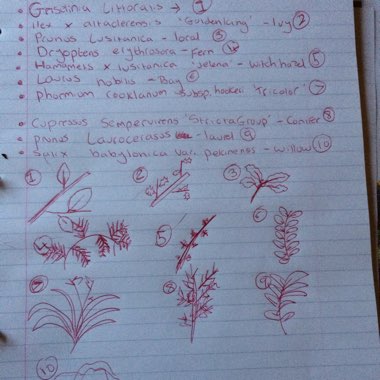 • Griselinia Littoralis → ①
• ilex x altaclerensis 'Goldenking' - Ivy ②
• Prunus Lusitanica - local ③
• Dryopteris erythrosora - Fern ④
• Hamamelis x wsitanica 'Jelena' - witch hazel ⑤
• Laurus nobilis - Bay ⑥
• phormium cooklanum subsp. hookeri 'Tricolor' ⑦
• Cupressus Sempervirens 'Stricta Group' - Conifer ⑧
• prunus Laurocerasus - laurel ⑨
• Salix babylonica var. pekinensis - willow ⑩
① ② ③
④ ⑤ ⑥
⑦ ⑧ ⑨
⑩